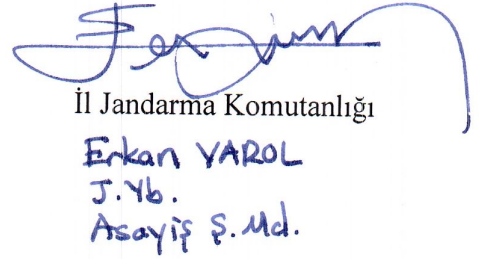 İl Jandarma Komutanlığı
Erkan VAROL
J.Yb.
Asayiş Ş.Md.